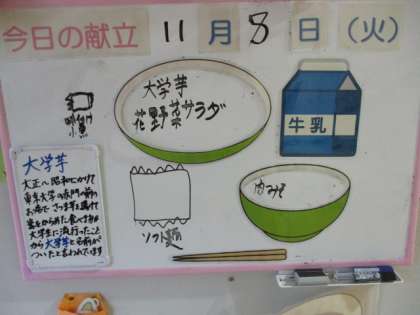 今日の献立 11月8日(火)
大学芋
花野菜サラダ
牛乳
肉みそ
ソフト麺
大学芋
大正〜昭和にかけて
東京大学の赤門の前の
お店で さつま芋を揚げ
蜜をからめた食べ物が
大学生に流行ったこと
から大学芋と名前が
ついたと言われています